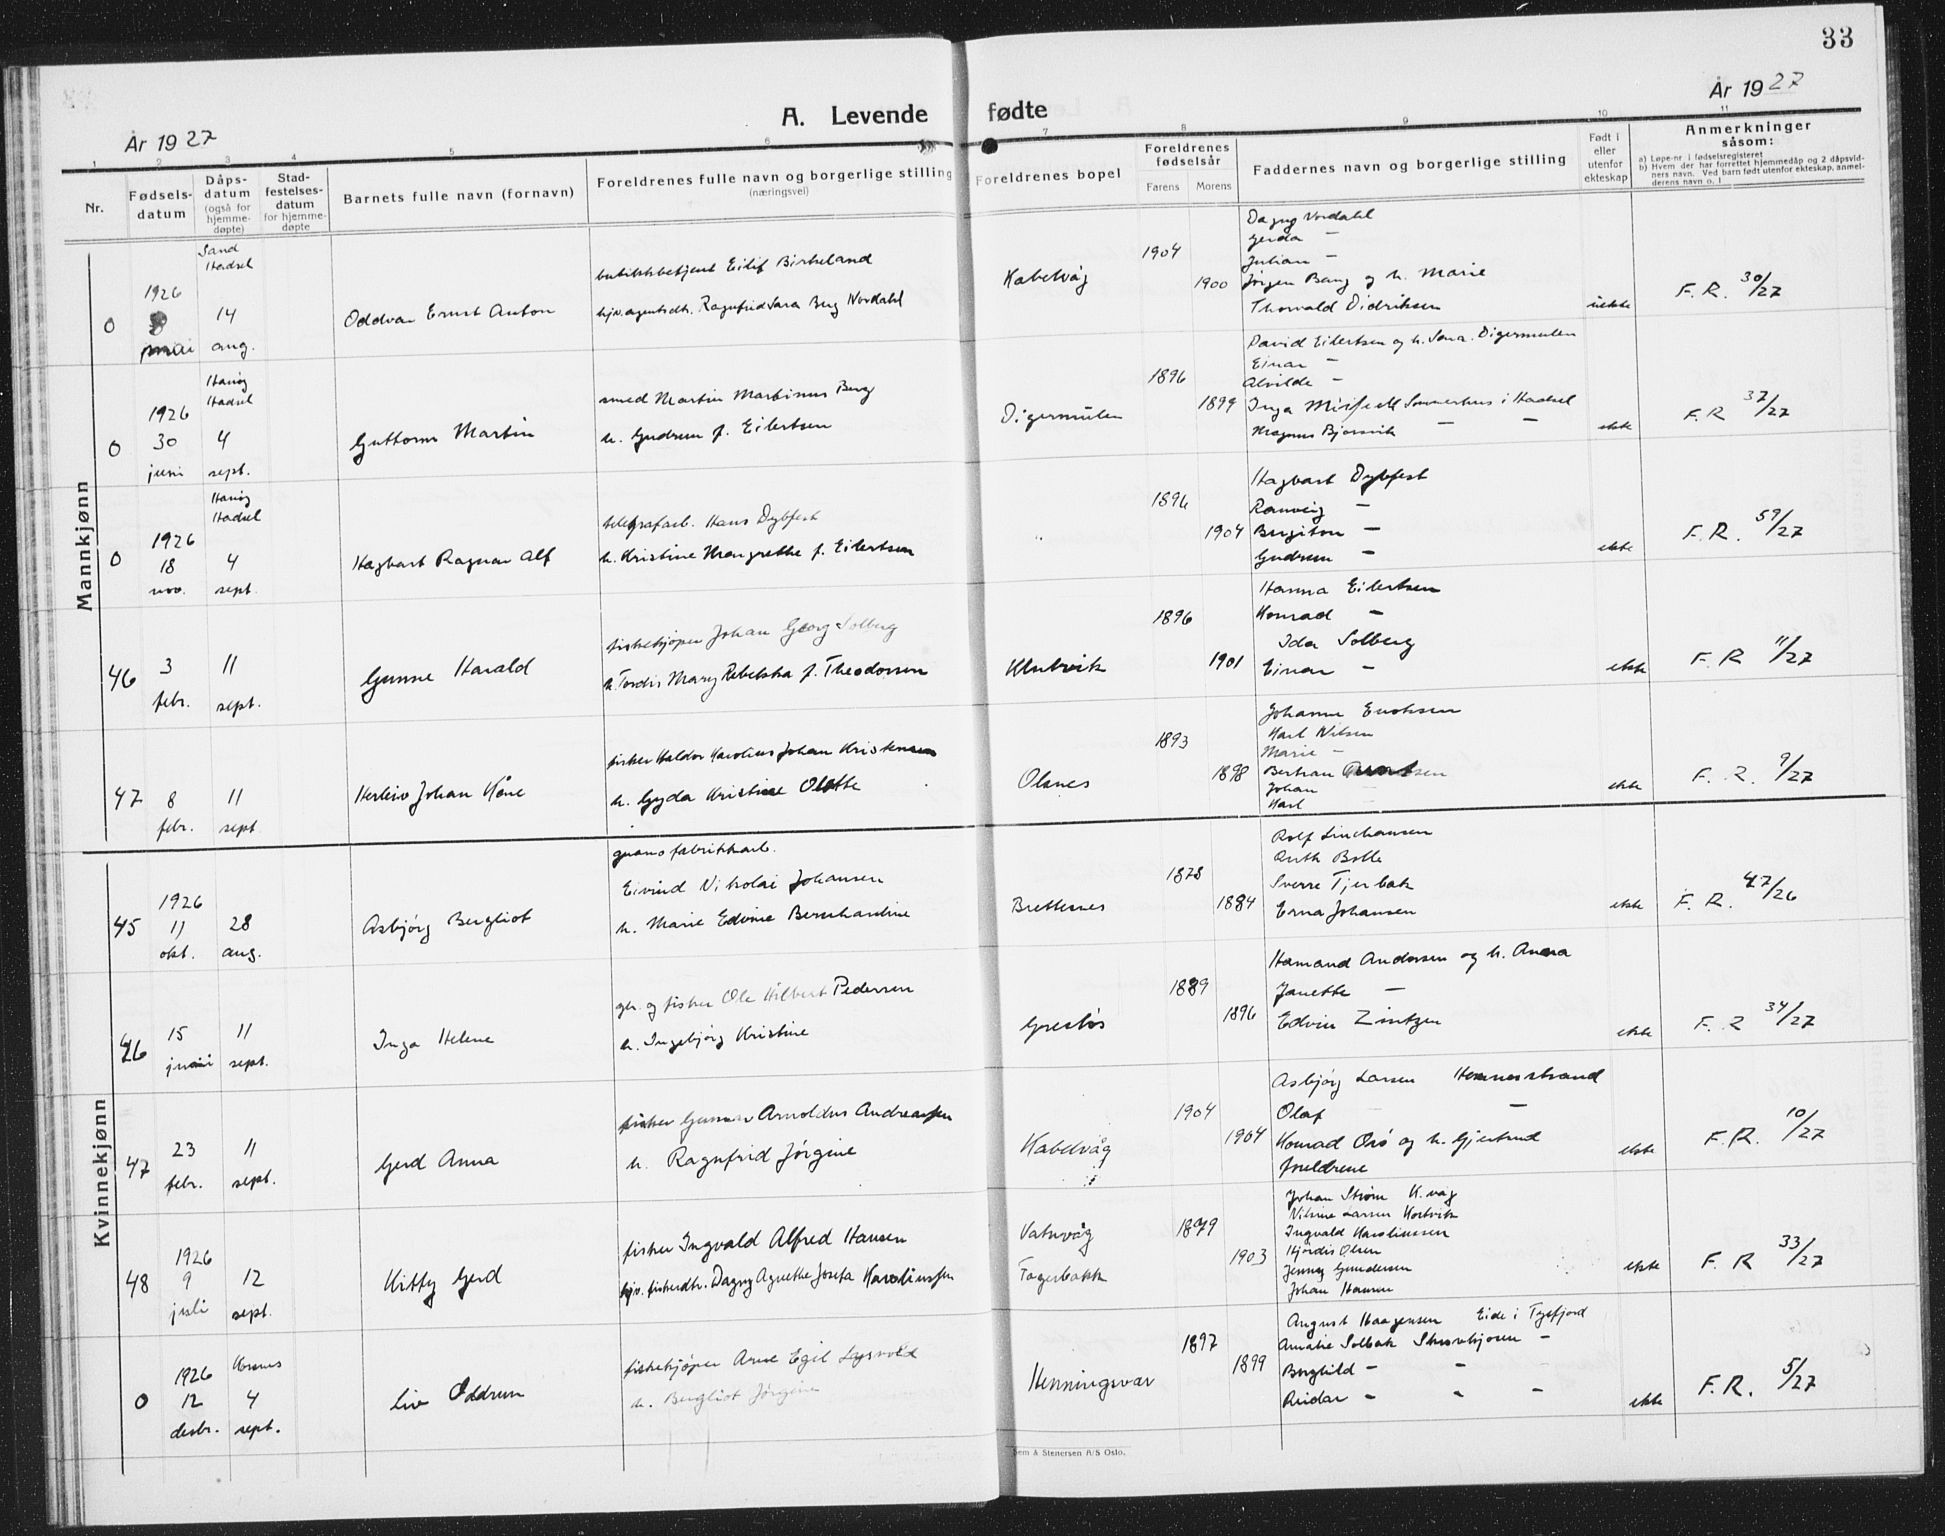 33
År 1927
A. Levende fødte
År 1927
1 2 3 4 5 6 7 8 9 10 11
Nr.
Fødsels-
datum
Dåps-
datum
(også for
hjemme-
døpte)
Stad-
festelses-
datum
for hjemme-
døpte
Barnets fulle navn (fornavn)
Foreldrenes fulle navn og borgerlige stilling
(næringsvei)
Foreldrenes bopel
Foreldrenes
fødselsår
Farens Morens
Faddernes navn og borgerlige stilling
Født i
eller
utenfor
ekteskap
Anmerkninger
såsom:
a) Løpe-nr i fødselsregisteret
b) Hvem der har forrettet hjemmedåp og 2 dåpsvid-
ners navn. Ved barn født utenfor ekteskap, anmel-
derens navn o. l
Mannkjønn
0
1926
mai
Sand
Hadsel
14
aug.
Oddvar Ernst Anton
butikkbetjent Eilif Birkeland
hjv. agentdtr. Ragnfrid Sara Berg Nordahl
Kabelvåg
1904
1900
Dagny Nordahl
Gerda —
Julian —
Jørgen Berg og h. Marie
Thorvald Didriksen
uekte
F. R. 30/27
0
1926
30
juni
Hanøy
Hadsel
4
sept.
Guttorm Martin
smed Martin Martinus Berg
h. Gudrun f. Eilertsen
Digermulen
1896
1899
David Eilertsen og h. Sara. Digermulen
Einar —
Alvilde —
Inga Misfjell Sommerhus i Hadsel
Magnus Bjørsvik — —
ekte
F. R 37/27
0
1926
18
nov.
Hanøy
Hadsel
4
sept.
Hagbart Ragnar Alf
telegrafarb. Hans Dybfest
h. Kristine Margrethe f. Eilertsen
1896
1904
Hagbart Dybfest
Ranveig —
Birgiton —
Gudrun —
ekte
F. R. 59/27
46
3
febr.
11
sept.
Gunne Harald
fiskekjøper Johan Georg Solberg
h. Tordis Mary Rebekka f. Theodorsen
Klubvik
1896
1901
Hanna Eilertsen
Konrad —
Ida Solberg
Einar —
ekte
F. R 11/27
47
8
febr.
11
sept
Herleiv Johan Kåre
fisker Haldor Karolius Johan Kristensen
h. Gyda Kristine Olette
Olsnes
1893
1898
Johanne Enoksen
Karl Nilsen
Marie —
Johan
Karl
ekte
F. R. 9/27
Kvinnekjønn
45
1926
11
okt.
28
aug.
Asbjørg Bergliot
guanofabrikkarb.
Eivind Nikolai Johansen
h. Marie Edvine Bernhardine
Brettesnes
1878
1884
Rolf Linchausen
Ruth Bolle
Sverre Tjerbak
Erna Johansen
ekte
F. R. 47/26
46
15
juni
11
sept.
Inga Helene
gbr. og fisker Ole Hilbert Pedersen
h. Ingebjørg Kristine
1889
1896
Hamand Andersen og h. Anna
Janette —
Edvin Zintzen
ekte
F. R 34/27
47
23
febr.
11
sept.
Gerd Anna
fisker Gunnar Arnoldus Andreassen
h. Ragnfrid Jørgine
Kabelvåg
1904
1904
Asbjørg Larsen Hennesstrand
Olaf —
Konrad Orø og h. Gjertrud
foreldrene
ekte
F. R. 10/27
48
1926
9
juli
12
sept.
Kitty Gerd
fisker Ingvald Alfred Hansen
hjv. fiskerdtr. Dagny Agnethe Josefa Karoliussen
Vatnvåg
Fagerbakk
1879
1903
Johan Strøm K.våg
Nilsine Larsen Kortvik
Ingvald Karoliussen
Hjørdis Olsen
Jenny Gundersen
Johan Hansen
ekte
F. R 33/27
0
1926
12
desbr.
4
sept.
Liv Oddrun
fiskekjøper Arne Egil Lysvold
h. Bergliot Jørgine
Henningsvær
1897
1899
August Haagensen Eide i Tysfjord
Amalie Solbak —
Borghild — —
Reidar — — —
ekte
F. R. 5/27
Sem & Stenersen A/S Oslo.